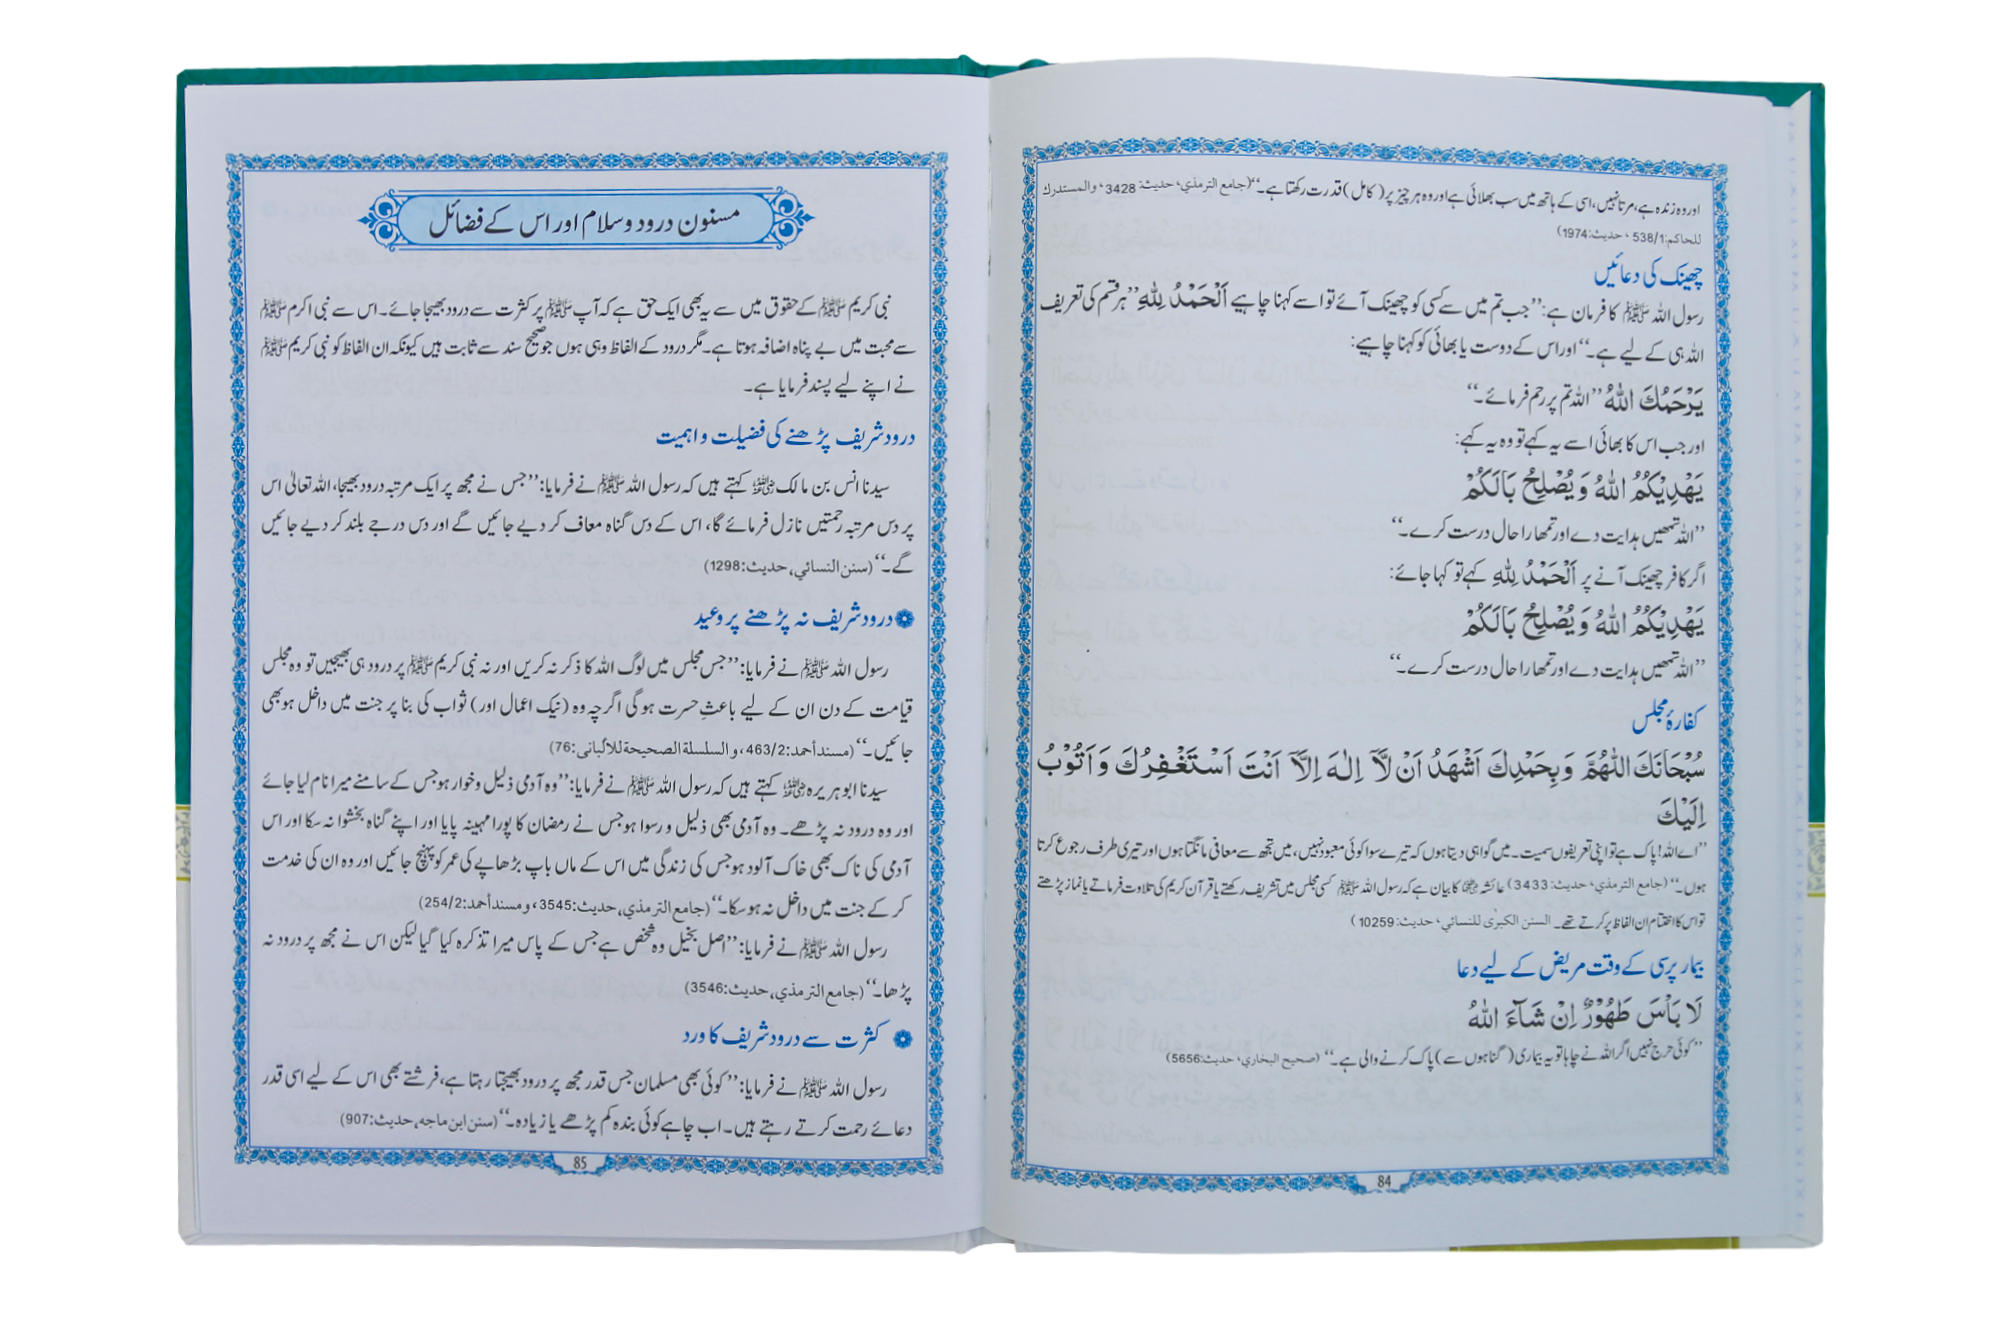 اور وہ زندہ ہے، مرتا نہیں، اسی کے ہاتھ میں سب بھلائی ہے اور وہ ہر چیز پر (کامل) قدرت رکھتا ہے۔“ (جامع الترمذي، حدیث: 3428، والمستدرك
للحاکم: 538/1، حدیث: 1974)
چھینک کی دعائیں
رسول اللہ ﷺ کا فرمان ہے: ”جب تم میں سے کسی کو چھینک آئے تو اسے کہنا چاہیے اَلْحَمْدُ لِلّٰهِ ”ہر قسم کی تعریف
اللہ ہی کے لیے ہے۔“ اور اس کے دوست یا بھائی کو کہنا چاہیے:
يَرْحَمُكَ اللّٰهُ ”اللہ تم پر رحم فرمائے۔“
اور جب اس کا بھائی اسے یہ کہے تو وہ یہ کہے:
يَهْدِيْكُمُ اللّٰهُ وَ يُصْلِحُ بَالَكُمْ
”اللہ تمھیں ہدایت دے اور تمھارا حال درست کرے۔“
اگر کافر چھینک آنے پر اَلْحَمْدُ لِلّٰهِ کہے تو کہا جائے:
يَهْدِيْكُمُ اللّٰهُ وَ يُصْلِحُ بَالَكُمْ
”اللہ تمھیں ہدایت دے اور تمھارا حال درست کرے۔“
کفارۂ مجلس
سُبْحَانَكَ اللّٰهُمَّ وَ بِحَمْدِكَ اَشْهَدُ اَنْ لَّآ اِلٰهَ اِلَّآ اَنْتَ اَسْتَغْفِرُكَ وَ اَتُوْبُ
اِلَيْكَ
”اے اللہ! پاک ہے تو اپنی تعریفوں سمیت۔ میں گواہی دیتا ہوں کہ تیرے سوا کوئی معبود نہیں، میں تجھ سے معافی مانگتا ہوں اور تیری طرف رجوع کرتا
ہوں۔“ (جامع الترمذي، حدیث: 3433) عائشہ ؓ کا بیان ہے کہ رسول اللہ ﷺ کسی مجلس میں تشریف رکھتے یا قرآن کریم کی تلاوت فرماتے یا نماز پڑھتے
تو اس کا اختتام ان الفاظ پر کرتے تھے۔ السنن الکبرٰی للنسائي، حدیث: 10259)
بیمار پرسی کے وقت مریض کے لیے دعا
لَا بَاْسَ طَهُوْرٌ اِنْ شَآءَ اللّٰهُ
”کوئی حرج نہیں اگر اللہ نے چاہا تو یہ بیماری (گناہوں سے) پاک کرنے والی ہے۔“ (صحیح البخاري، حدیث: 5656)
84
مسنون درود و سلام اور اس کے فضائل
نبی کریم ﷺ کے حقوق میں سے یہ بھی ایک حق ہے کہ آپ ﷺ پر کثرت سے درود بھیجا جائے۔ اس سے نبی اکرم ﷺ
سے محبت میں بے پناہ اضافہ ہوتا ہے۔ مگر درود کے الفاظ وہی ہوں جو صحیح سند سے ثابت ہیں کیونکہ ان الفاظ کو نبی کریم ﷺ
نے اپنے لیے پسند فرمایا ہے۔
درود شریف پڑھنے کی فضیلت و اہمیت
سیدنا انس بن مالک ؓ کہتے ہیں کہ رسول اللہ ﷺ نے فرمایا: ”جس نے مجھ پر ایک مرتبہ درود بھیجا، اللہ تعالیٰ اس
پر دس مرتبہ رحمتیں نازل فرمائے گا، اس کے دس گناہ معاف کر دیے جائیں گے اور دس درجے بلند کر دیے جائیں
گے۔“ (سنن النسائي، حدیث: 1298)
درود شریف نہ پڑھنے پر وعید
رسول اللہ ﷺ نے فرمایا: ”جس مجلس میں لوگ اللہ کا ذکر نہ کریں اور نہ نبی کریم ﷺ پر درود ہی بھیجیں تو وہ مجلس
قیامت کے دن ان کے لیے باعثِ حسرت ہو گی اگرچہ وہ (نیک اعمال اور) ثواب کی بنا پر جنت میں داخل ہو بھی
جائیں۔“ (مسند أحمد: 463/2، و السلسلة الصحیحة للألبانی: 76)
سیدنا ابو ہریرہ ؓ کہتے ہیں کہ رسول اللہ ﷺ نے فرمایا: ”وہ آدمی ذلیل و خوار ہو جس کے سامنے میرا نام لیا جائے
اور وہ درود نہ پڑھے۔ وہ آدمی بھی ذلیل و رسوا ہو جس نے رمضان کا پورا مہینہ پایا اور اپنے گناہ بخشوا نہ سکا اور اس
آدمی کی ناک بھی خاک آلود ہو جس کی زندگی میں اس کے ماں باپ بڑھاپے کی عمر کو پہنچ جائیں اور وہ ان کی خدمت
کر کے جنت میں داخل نہ ہو سکا۔“ (جامع الترمذي، حدیث: 3545، و مسند أحمد: 254/2)
رسول اللہ ﷺ نے فرمایا: ”اصل بخیل وہ شخص ہے جس کے پاس میرا تذکرہ کیا گیا لیکن اس نے مجھ پر درود نہ
پڑھا۔“ (جامع الترمذي، حدیث: 3546)
کثرت سے درود شریف کا ورد
رسول اللہ ﷺ نے فرمایا: ”کوئی بھی مسلمان جس قدر مجھ پر درود بھیجتا رہتا ہے، فرشتے بھی اس کے لیے اسی قدر
دعائے رحمت کرتے رہتے ہیں۔ اب چاہے کوئی بندہ کم پڑھے یا زیادہ۔“ (سنن ابن ماجه، حدیث: 907)
85